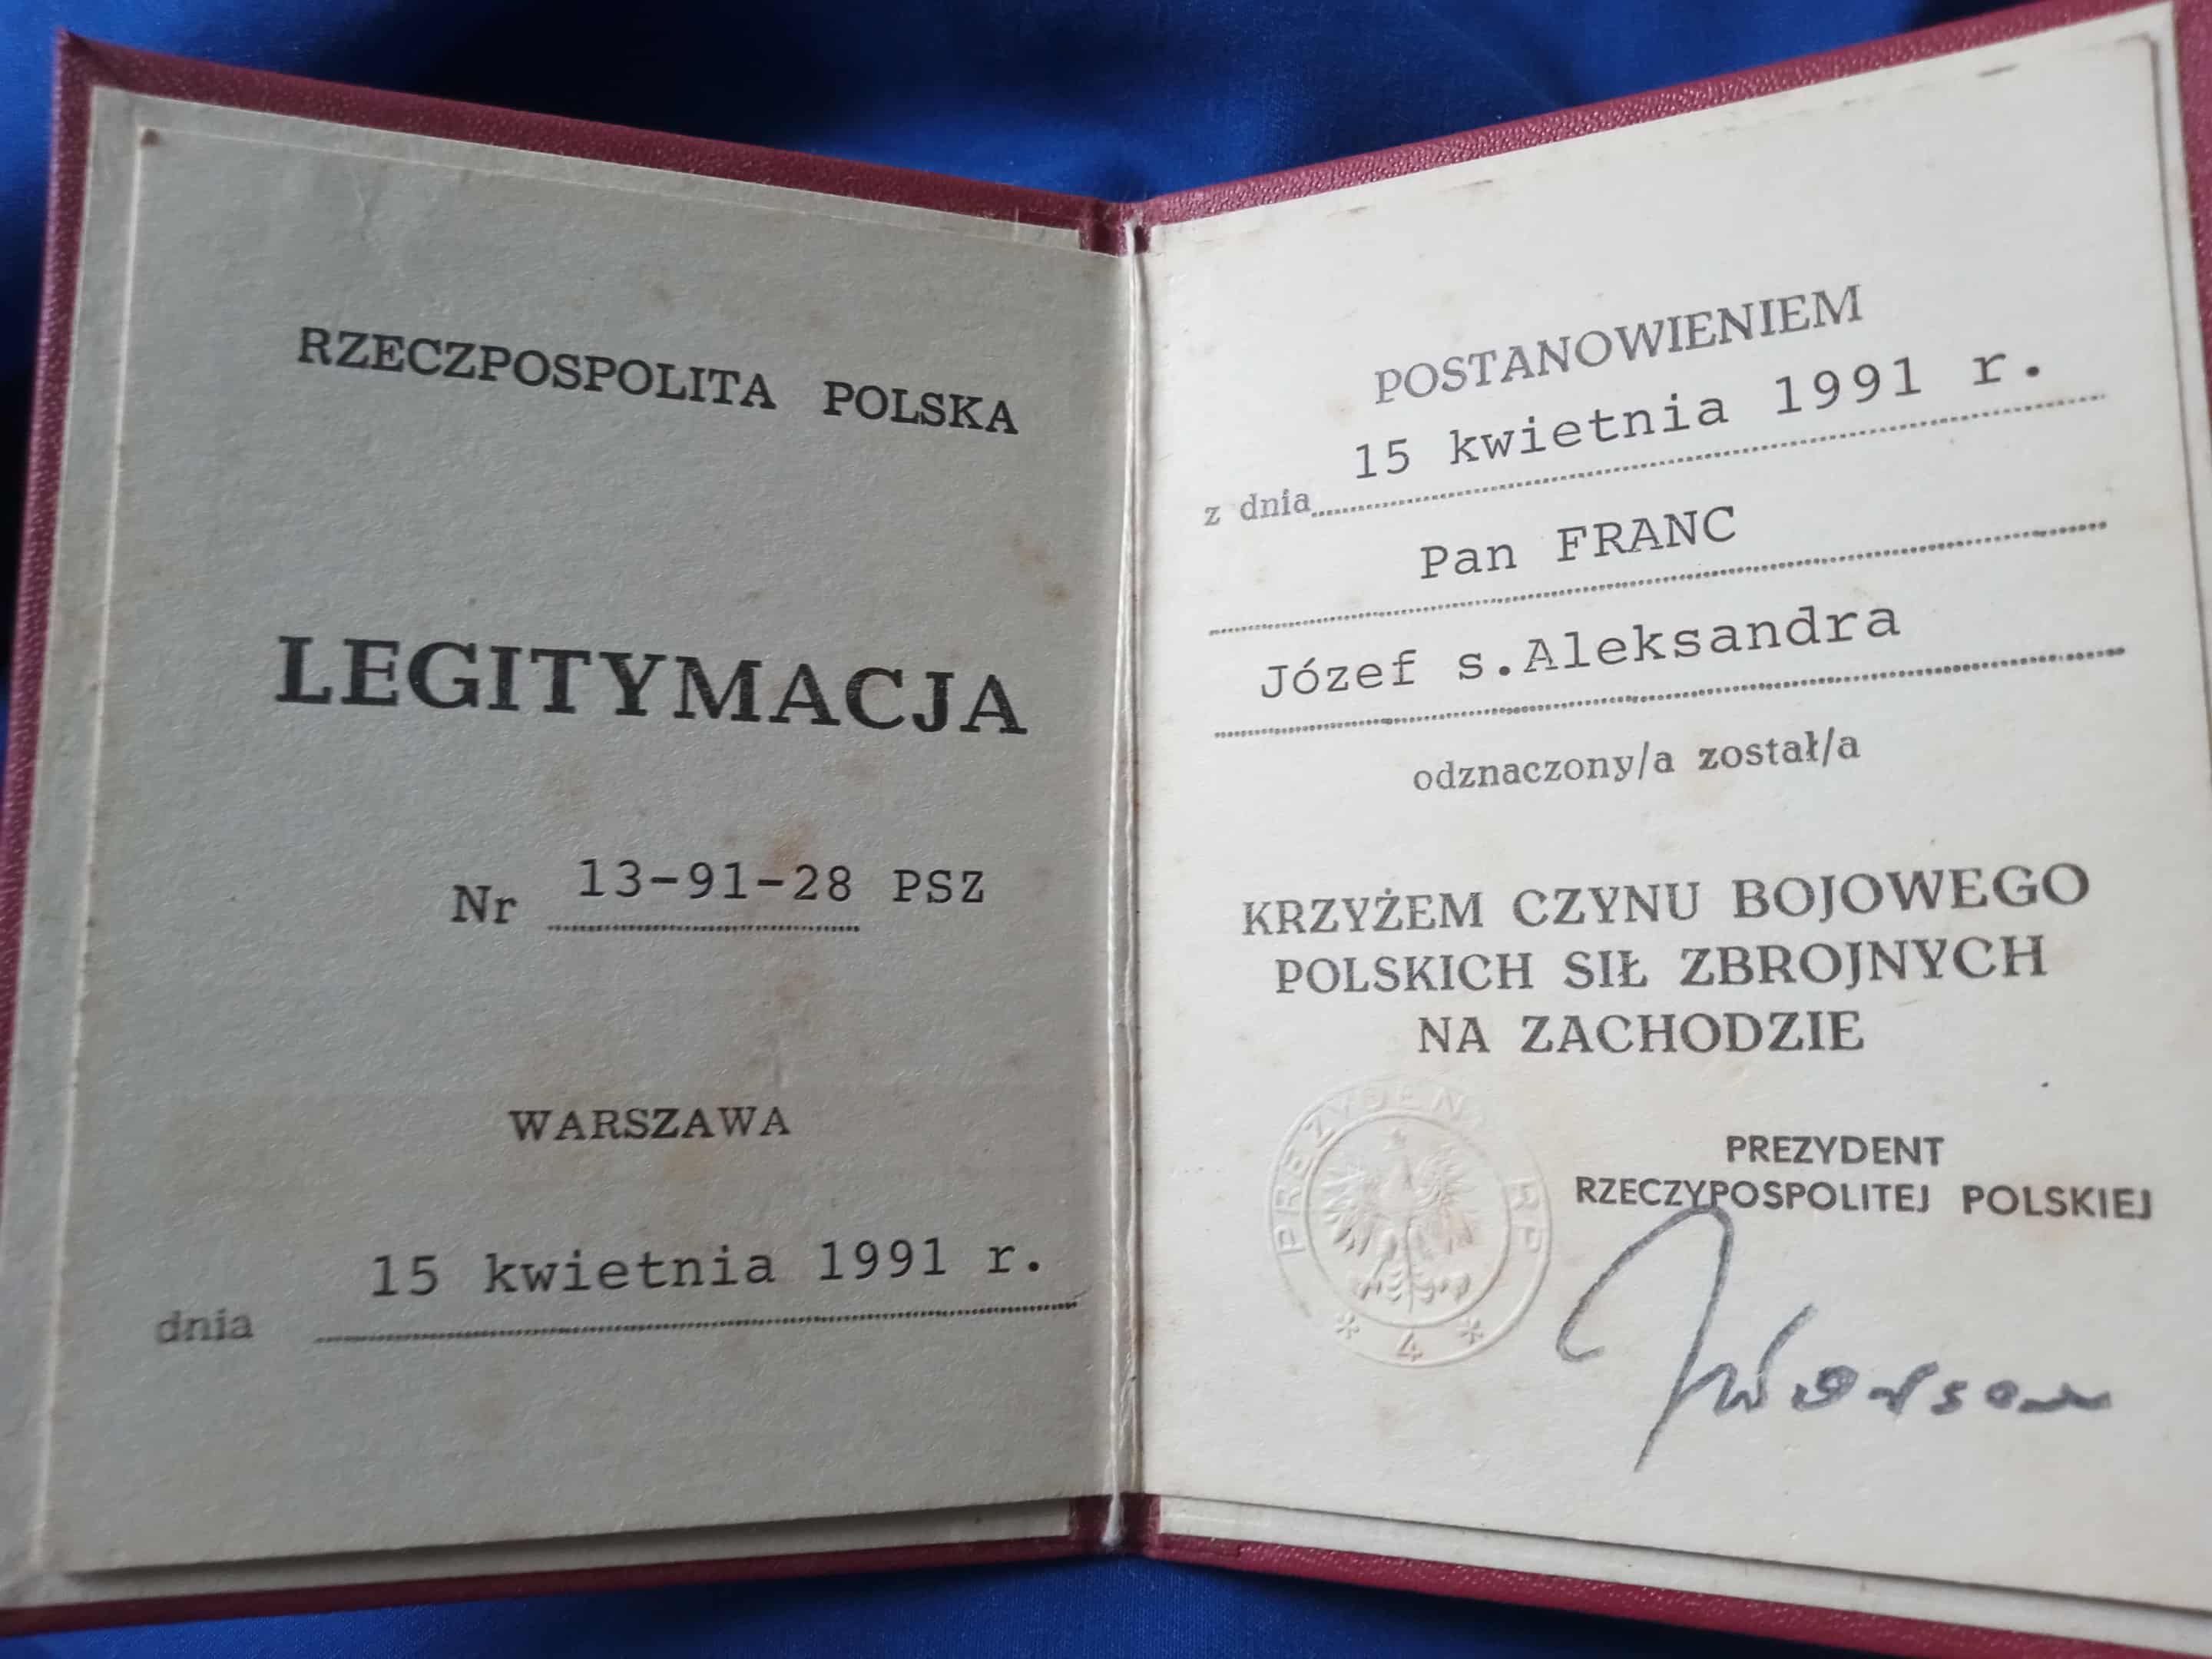 RZECZPOSPOLITA POLSKA
LEGITYMACJA
Nr 13-91-28 PSZ
WARSZAWA
dnia 15 kwietnia 1991 r.
POSTANOWIENIEM
z dnia 15 kwietnia 1991 r.
Pan FRANC
Józef s.Aleksandra
odznaczony/a został/a
KRZYŻEM CZYNU BOJOWEGO
POLSKICH SIŁ ZBROJNYCH
NA ZACHODZIE
PREZYDENT RP
* 4 *
PREZYDENT
RZECZYPOSPOLITEJ POLSKIEJ